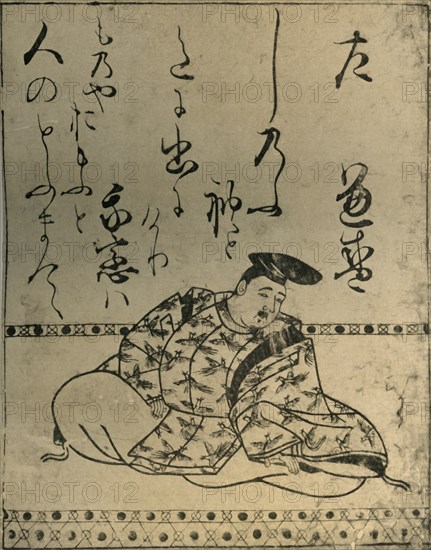 左 兼盛
しのふ
れと
色に出に
けり
我恋は
ものやおもふと
人のとふまて
PHOTO12